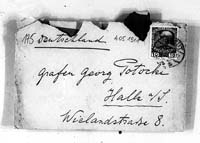 Deutschland
Grafen Georg Potocki
Halle a/S.
Wielandstraße 8.